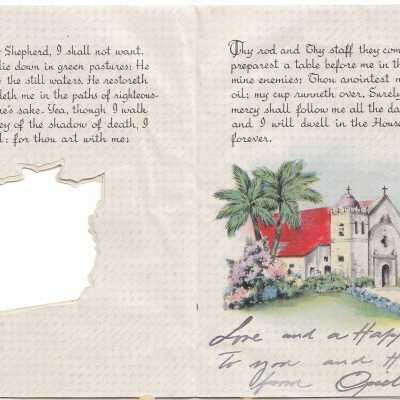 Shepherd, I shall not want.
lie down in green pastures: He
the still waters. He restoreth
leth me in the paths of righteous-
e's sake. Yea, though I walk
ey of the shadow of death, I
: for thou art with me:
Thy rod and Thy staff they com
preparest a table before me in th
mine enemies: Thou anointest m
oil: my cup runneth over. Surely
mercy shall follow me all the da
and I will dwell in the House
forever.
Love and a Happ
To you and H
from